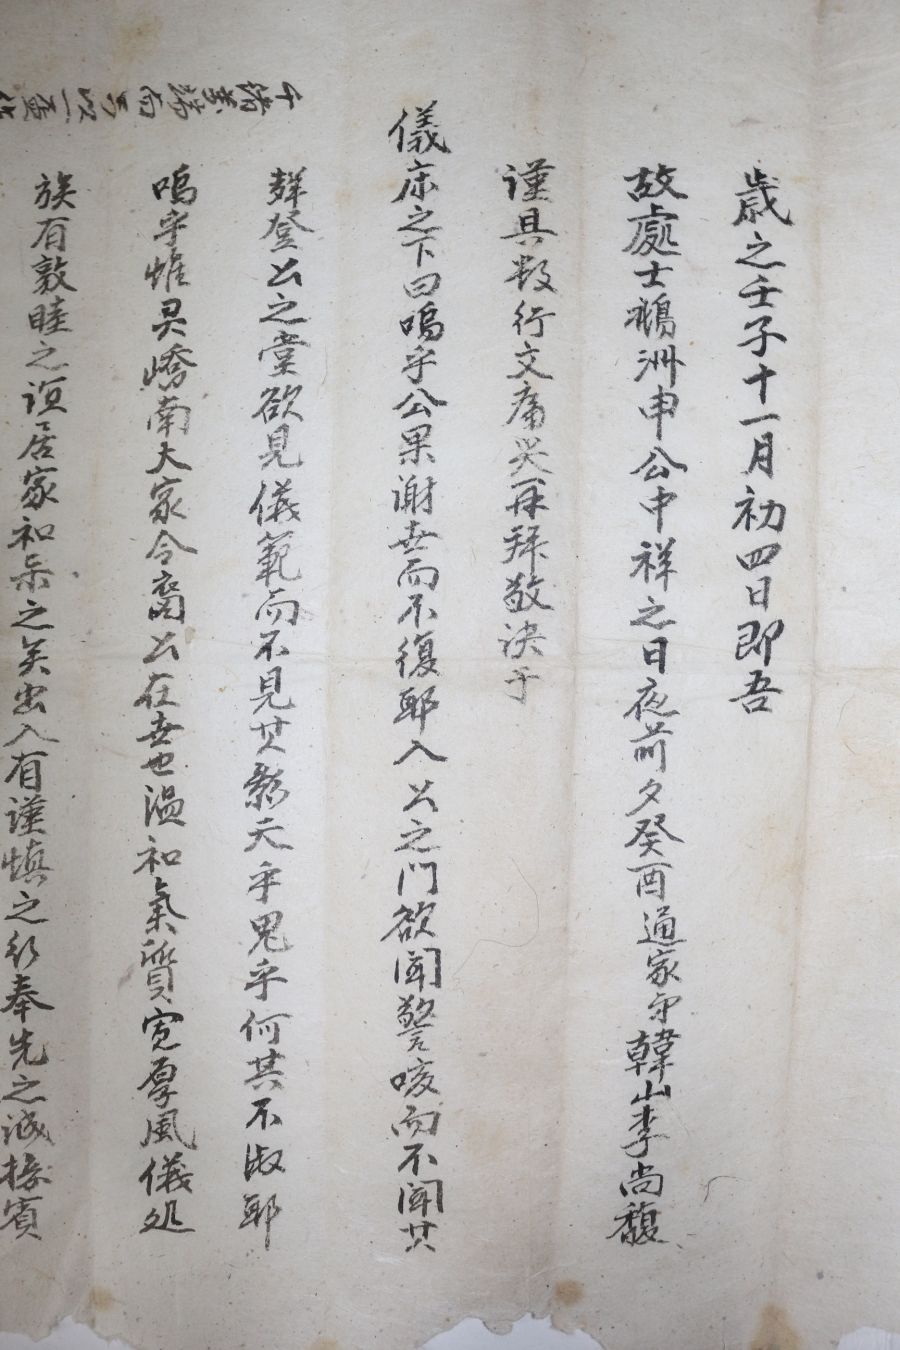 歲之壬子十一月初四日即吾
故處士鵝洲申公中祥之日夜前夕癸酉通家弟韓山李尚馥
謹具數行文痛哭再拜敬決于
儀床之下曰嗚乎公果謝世而不復耶入公之門欲聞警咳而不聞其
聲登公之堂欲見儀範而不見其影天乎鬼乎何其不淑耶
嗚乎惟灵嶠南大家令裔公在世也溫和氣質寬厚風儀処
族有敦睦之誼居家和樂之美出入有謹慎之行奉先之誠接賓